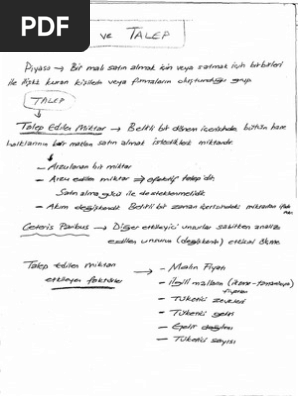 PDF
ve TALEP
Piyasa → Bir malı satın almak için veya satmak için birbirleri
ile ilişki kuran kişilerin veya firmaların oluşturduğu grup
TALEP
Talep Edilen Miktar → Belirli bir dönem içerisinde bütün hane
halklarının bir maldan satın almak istedikleri miktardır.
- Arzulanan bir miktar
- Arzu edilen miktar ⇒ efektif talep'dir.
Satın alma gücü ile desteklenmelidir.
- Akım değişkendir. Belirli bir zaman içerisindeki miktarları
Ceteris Paribus → Diğer etkileyici unsurlar sabitken analiz
edilen unsuruna (değişkenin) etkisini ölçme.
Talep edilen miktarı → - Malın Fiyatı
etkileyen faktörler - ilgili malların (ikame - tamamlayıcı)
fiyatı
- Tüketici zevkleri
- Tüketici geliri
- Gelir dağılımı
- Tüketici sayısı